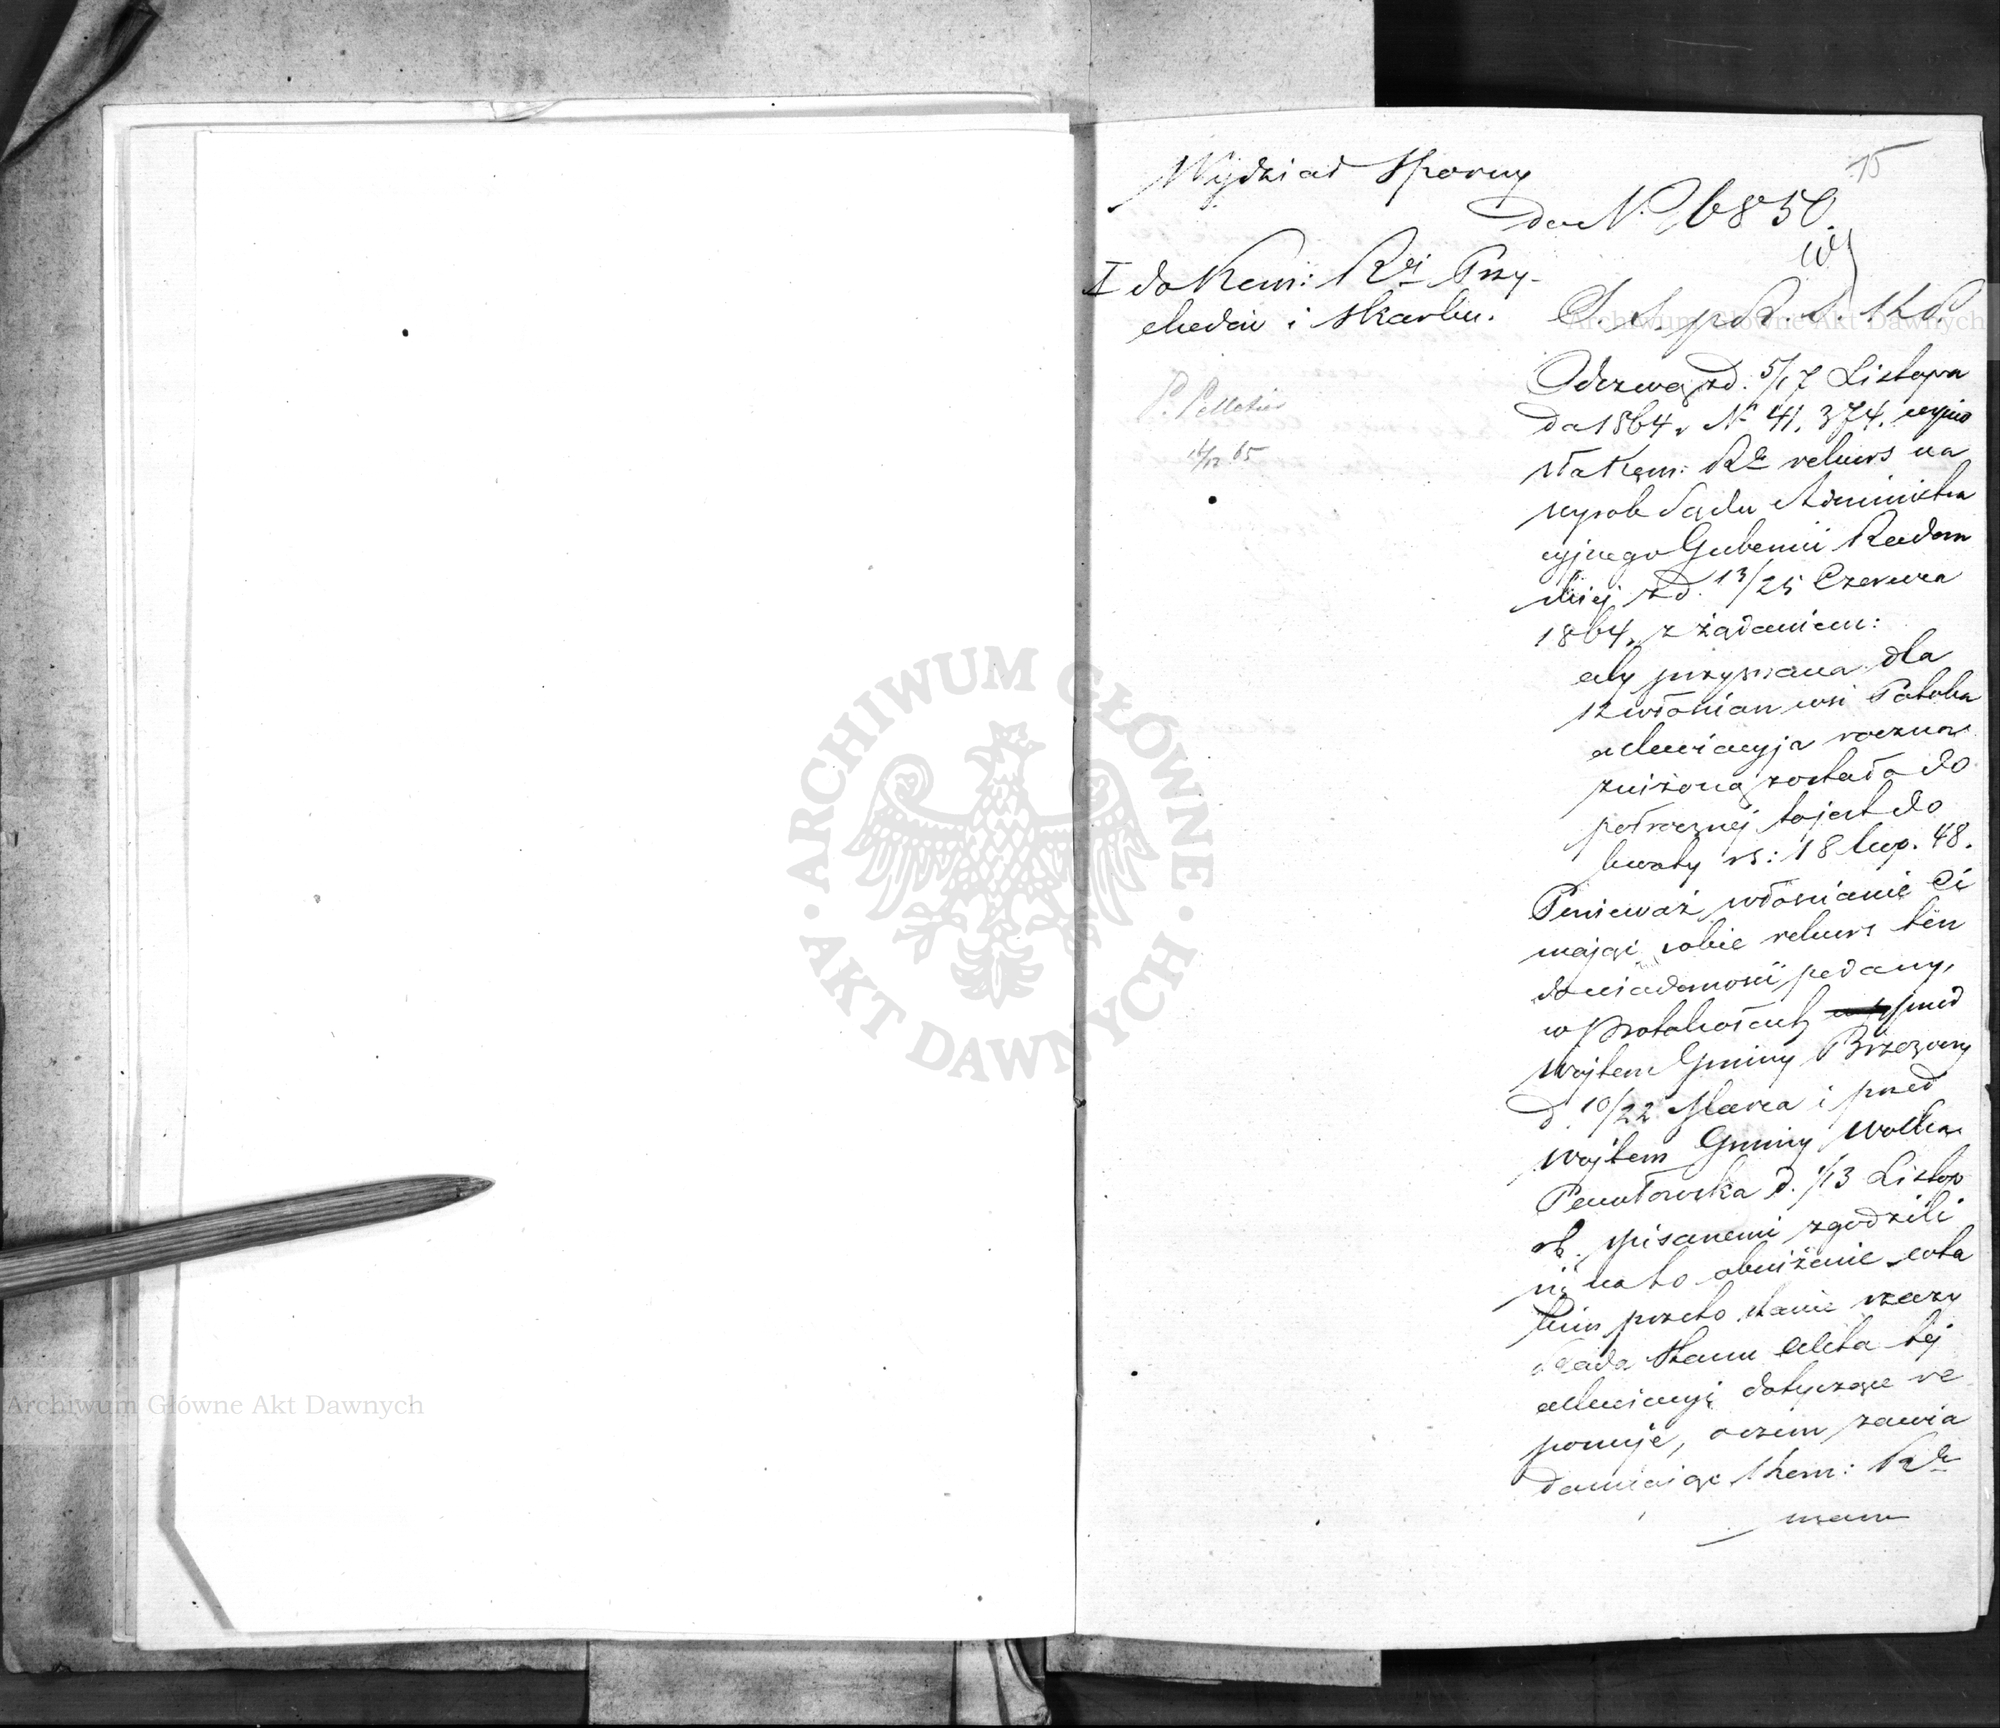 15
Wydział Sporny
do N. 6850.
I do Kom: Rei Przy-
chodów i Skarbu.
P. Pelletier
Odezwą z d. 5/17 Listopa
da 1864 r. N 41,374. wynio
sła Kom: Ra rekurs na
wyrok Sądu Administra
cyjnego Gubernii Radom
skiej z d. 13/25 Czerwca
1864 r. z żądaniem:
aby przyznana dla
12 włościan wsi Patoka
ewikcyja roczna
zniżoną została do
półrocznej to jest do
kwoty rs: 18 kop. 48.
Ponieważ włościanie Ci
mając sobie rekurs ten
do wiadomości podany,
w protokołach przed
Wójtem Gminy Brzozowy
d. 10/22 Marca i przed
Wójtem Gminy Wolka
d. 1/13 Listop
rb. spisanemi zgodzili
się na to obniżenie, w ta
kim przeto stanie rzeczy
Rada Stanu akta tej
dotyczące re
ponuje, o czem zawia
damiając Kom: Rą
mam
Archiwum Główne Akt Dawnych
ARCHIWUM GŁÓWNE
· AKT DAWNYCH ·
Archiwum Główne Akt Dawnych